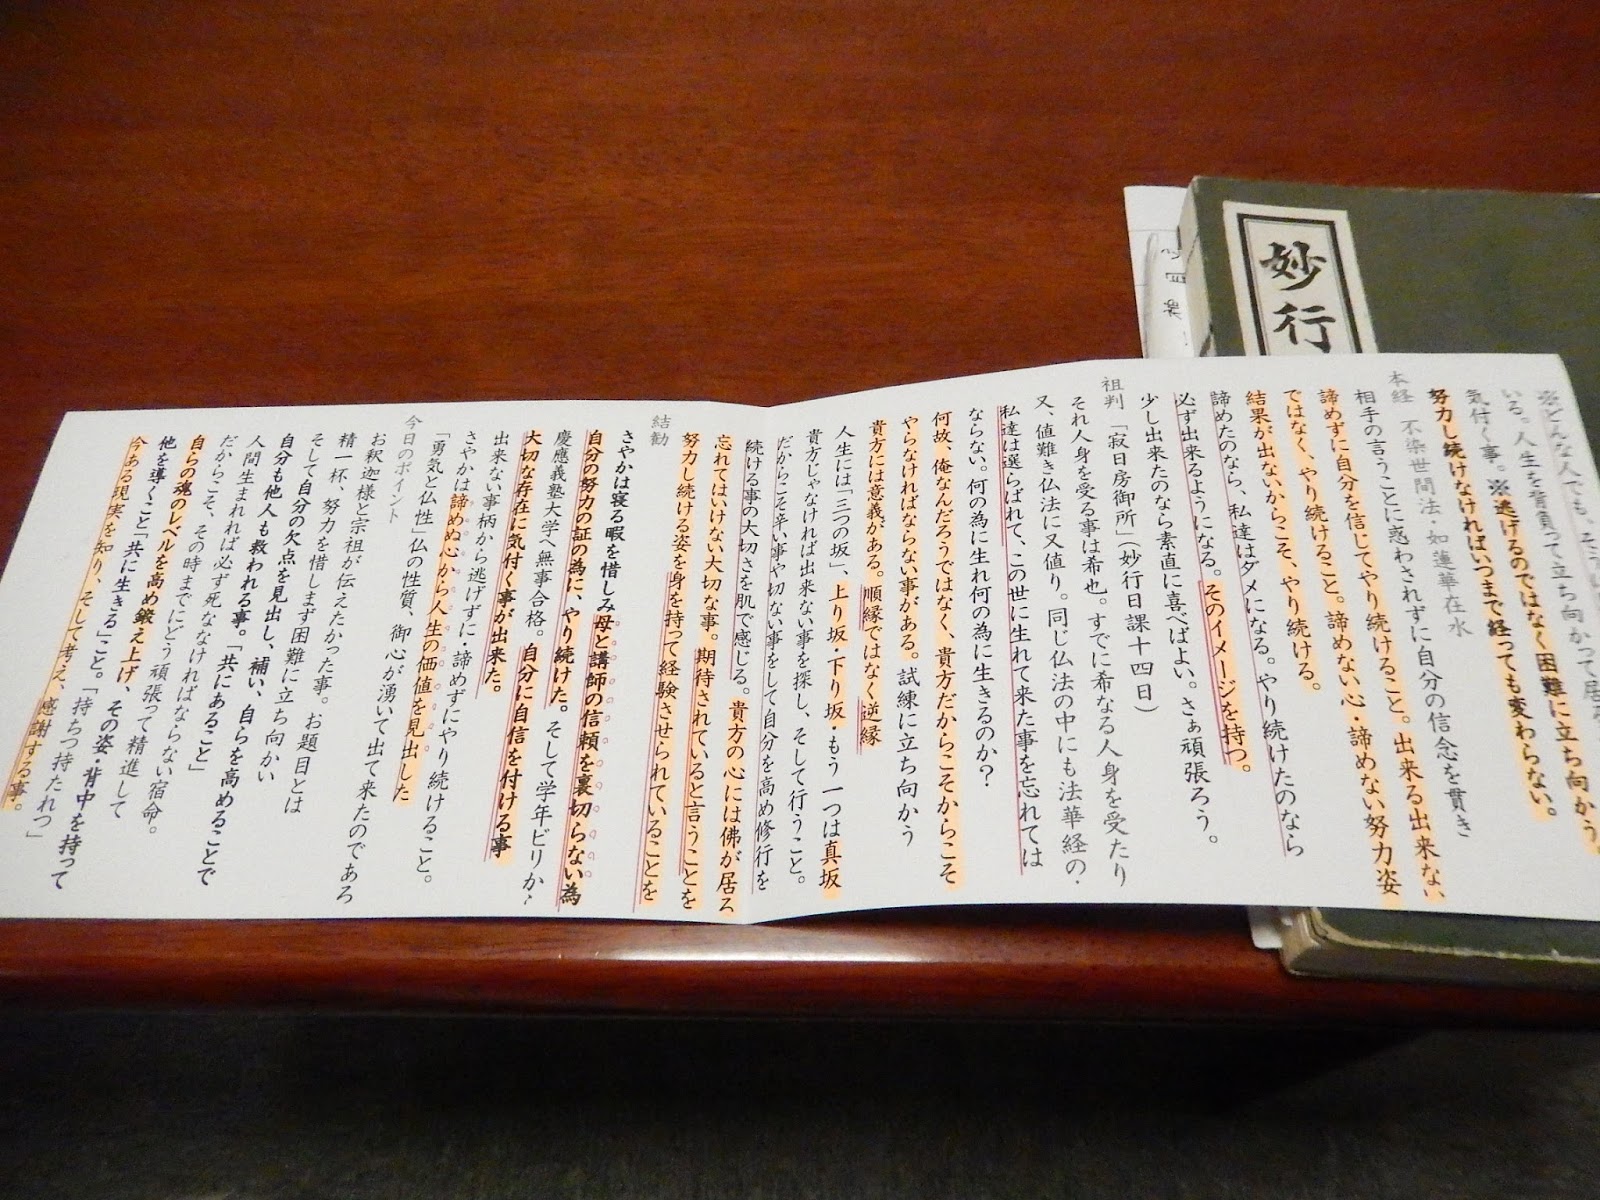 妙行
※どんな人でも、
いる。人生を背負って立ち向かって居る
気付く事。※逃げるのではなく困難に立ち向かう。
努力し続けなければいつまで経っても変わらない。
本経 不染世間法・如蓮華在水
相手の言うことに惑わされずに自分の信念を貫き
諦めずに自分を信じてやり続けること。出来る出来ない
ではなく、やり続けること。諦めない心・諦めない努力姿
結果が出ないからこそ、やり続ける。
諦めたのなら、私達はダメになる。やり続けたのなら
必ず出来るようになる。そのイメージを持つ。
少し出来たのなら素直に喜べばよい。さぁ頑張ろう。
祖判 「寂日房御所」(妙行日課十四日)
それ人身を受る事は希也。すでに希なる人身を受たり
又、値難き仏法に又値り。同じ仏法の中にも法華経の・
私達は選らばれて、この世に生れて来た事を忘れては
ならない。何の為に生れ何の為に生きるのか?
何故、俺なんだろうではなく、貴方だからこそからこそ
やらなければならない事がある。試練に立ち向かう
貴方には意義がある。順縁ではなく逆縁
人生には「三つの坂」、上り坂・下り坂・もう一つは真坂
貴方じゃなければ出来ない事を探し、そして行うこと。
だからこそ辛い事や切ない事をして自分を高め修行を
続ける事の大切さを肌で感じる。貴方の心には佛が居る
忘れてはいけない大切な事。期待されていると言うことを
努力し続ける姿を身を持って経験させられていることを
結勧
さやかは寝る暇を惜しみ母と講師の信頼を裏切らない為
自分の努力の証の為に、やり続けた。そして学年ビリか
慶應義塾大学へ無事合格。自分に自信を付ける事
大切な存在に気付く事が出来た。
出来ない事柄から逃げずに・諦めずにやり続けること。
さやかは諦めぬ心から人生の価値を見出した
「勇気と仏性」仏の性質、御心が湧いて出て来たのであろ
今日のポイント
お釈迦様と宗祖が伝えたかった事。お題目とは
精一杯、努力を惜しまず困難に立ち向かい
そして自分の欠点を見出し、補い、自らを高めることで
自分も他人も救われる事。「共にあること」
人間生まれれば必ず死ななければならない宿命。
だからこそ、その時までにどう頑張って精進して
自らの魂のレベルを高め鍛え上げ、その姿・背中を持って
他を導くこと「共に生きる」こと。「持ちつ持たれつ」
今ある現実を知り、そして考え、感謝する事。